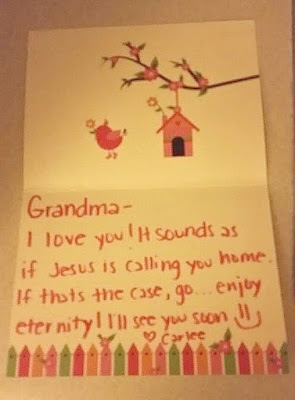 Grandma-
I love you! It sounds as
if Jesus is calling you home.
If thats the case, go... enjoy
eternity! I'll see you soon
Carlee